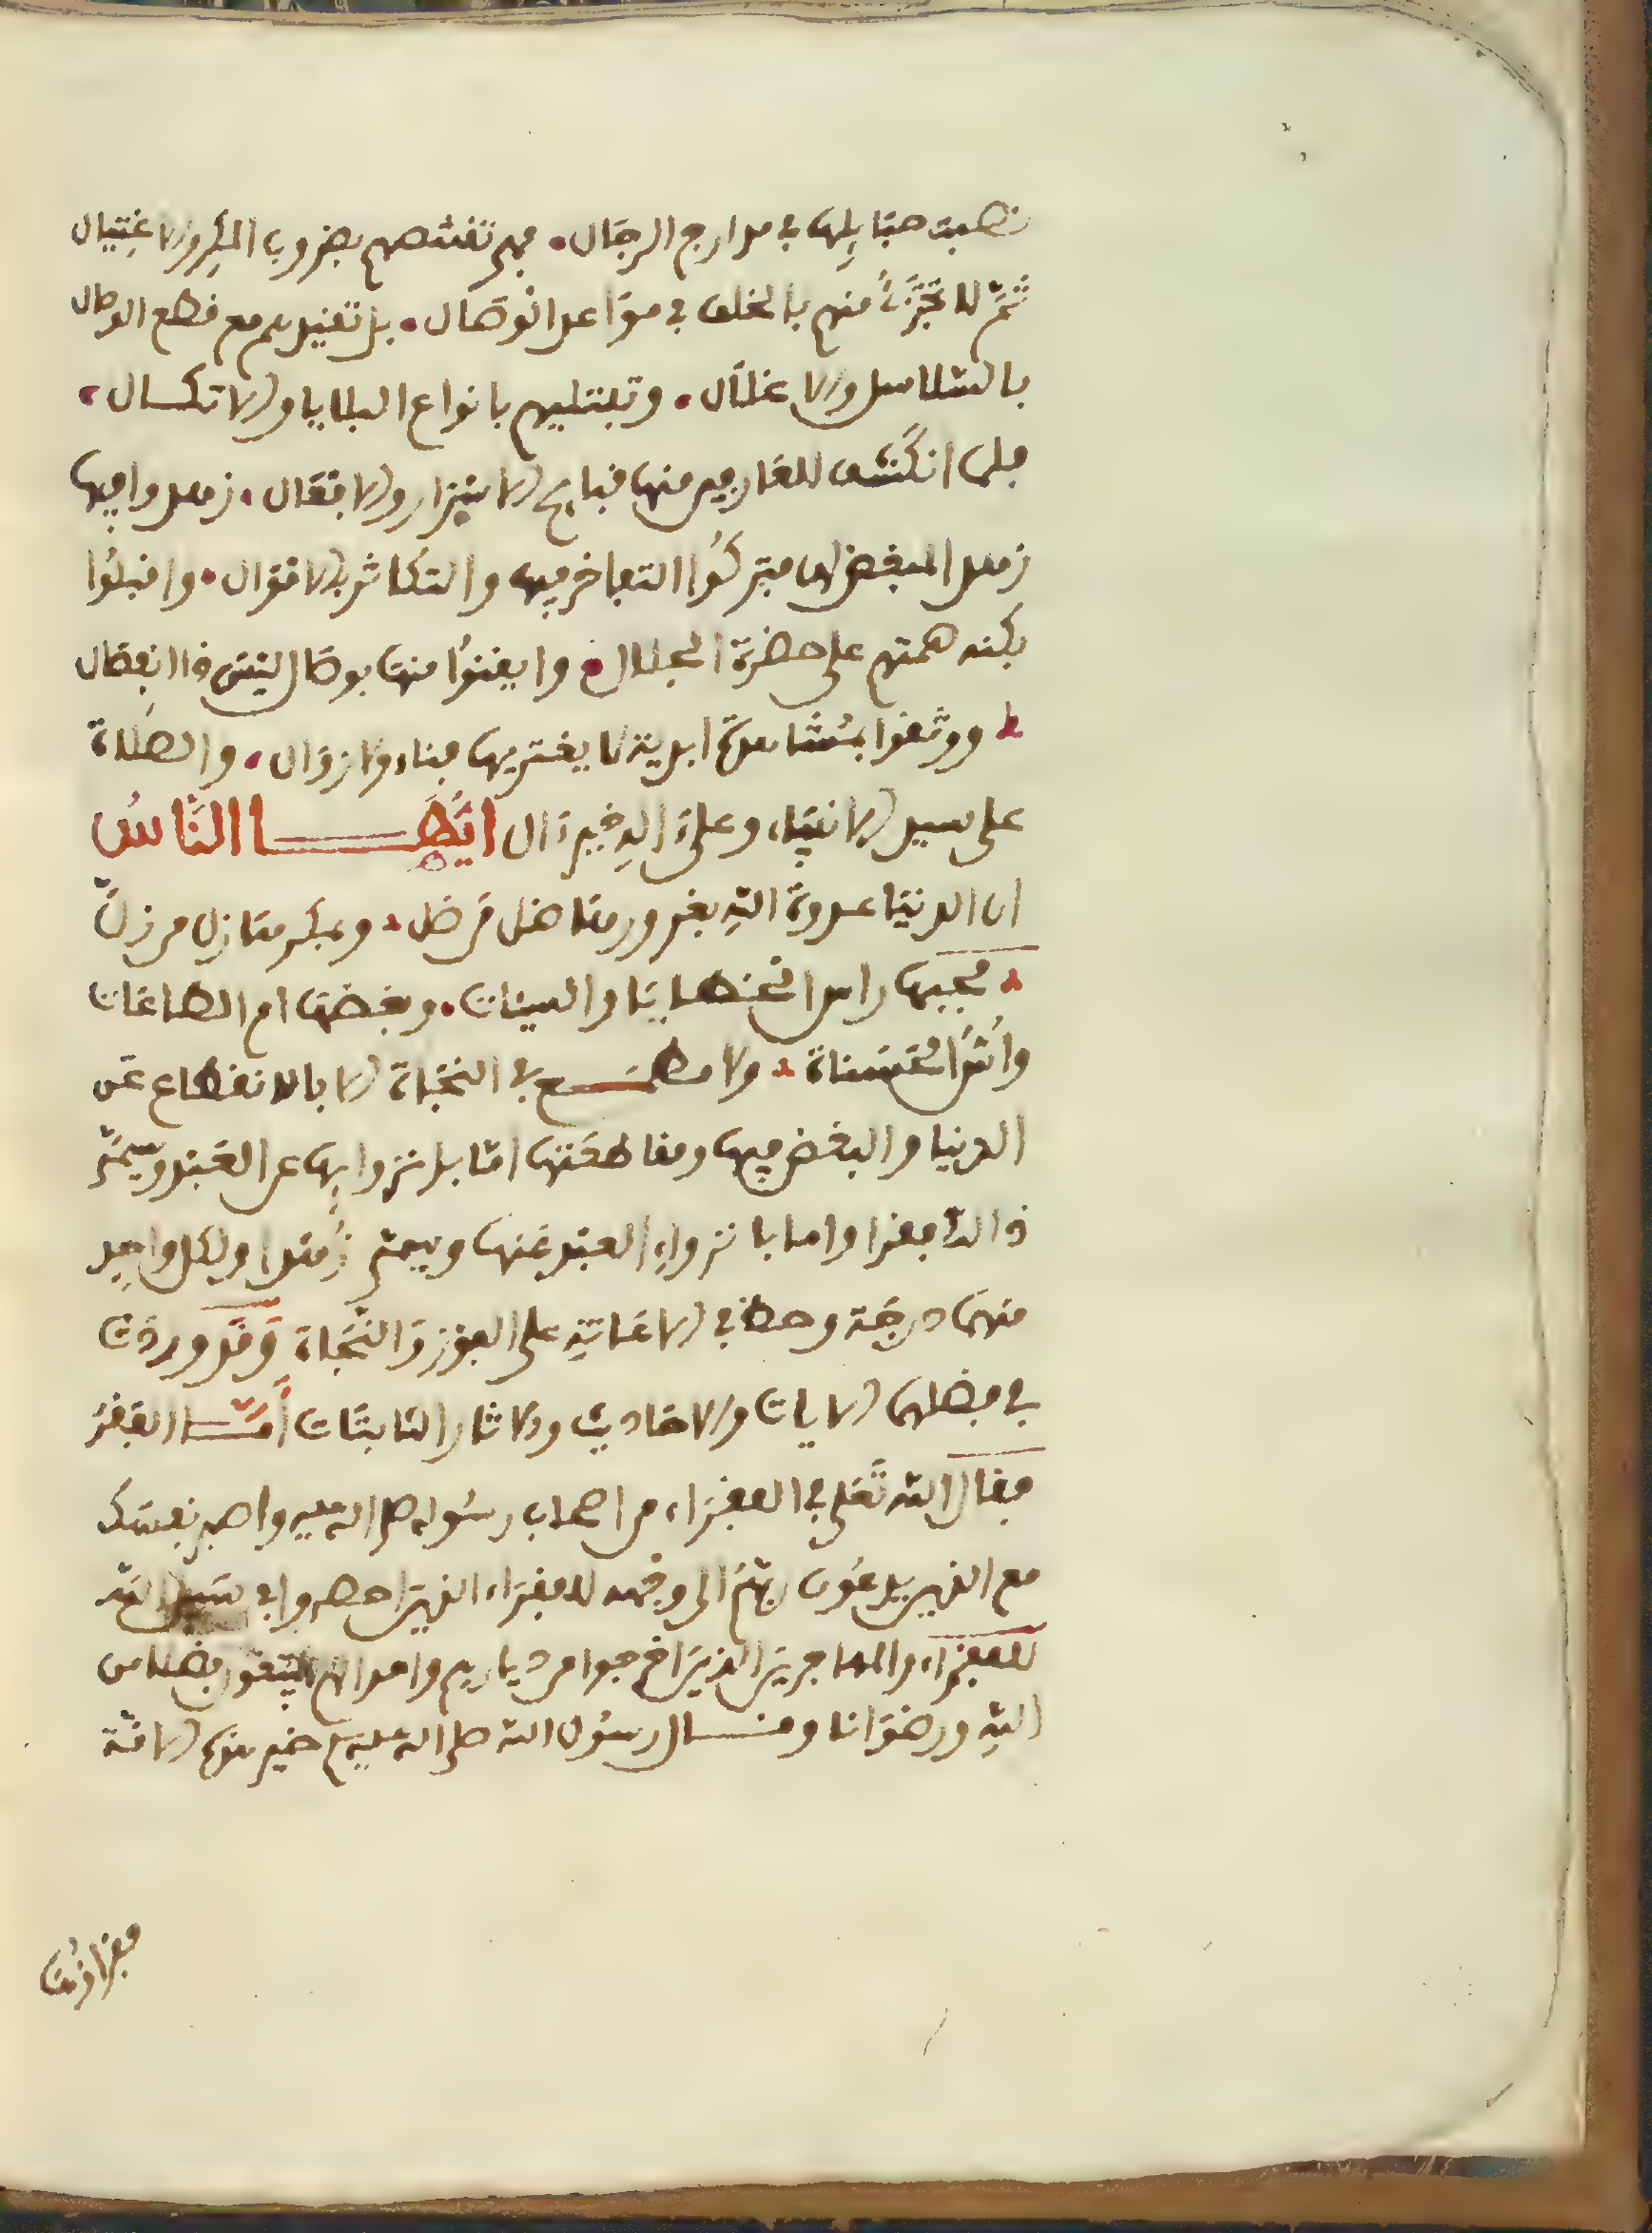 نصبت حبايلها في مدارج الرجال • فهي تقتنصهم بضروب المكر والاغتيال
ثم لا تجتزئ منهم بالخلف في مواعد الوصال • بل تقيدهم مع قطع الوصال
بالسلاسل والاغلال • وتبتليهم بانواع البلايا والانكسال •
فلما انكشف للعارفين منها قبايح الاسرار والافعال • زهدوا فيها
زهد المبغض لها فتركوا التفاخر فيها والتكاثر بالاموال • واقبلوا
بكنه همتهم على حضرة الجلال • وايقنوا منها بوصال ليس ذا انفصال
• ووثقوا بمشاهدة ابدية لا يعتريها فناء ولا زوال • والصلاة
على سيد الانبياء وعلى اله خير ال ايها الناس
ان الدنيا عدوة الله بغرورها ضل من ضل • وبمكرها زل من زل
• فحبها راس الخطايا والسيئات • وبغضها ام الطاعات
واس الحسنات • ولا مطمع في النجاة الا بالانقطاع عن
الدنيا والبغض فيها ومقاطعتها اما بانزوايها عن العبد ويسمى
ذالك فقرا واما بانزواء العبد عنها ويسمى زهدا ولكل واحد
منهما درجة وحظ في الاعانة على الفوز والنجاة وقد وردت
في فضلهما الايات والاحاديث والاثار الثابتات اما الفقر
فقال الله تعلى في الفقراء من اصحاب رسوله صلى الله عليه واصبر نفسك
مع الذين يدعون ربهم الى وجهه للفقراء الذين احصروا في سبيل الله
للفقراء والمهاجرين الذين اخرجوا من ديارهم واموالهم يبتغون فضلا من
الله ورضوانا وقال رسول الله صلى الله عليه خير هذه الامة
فقراؤها